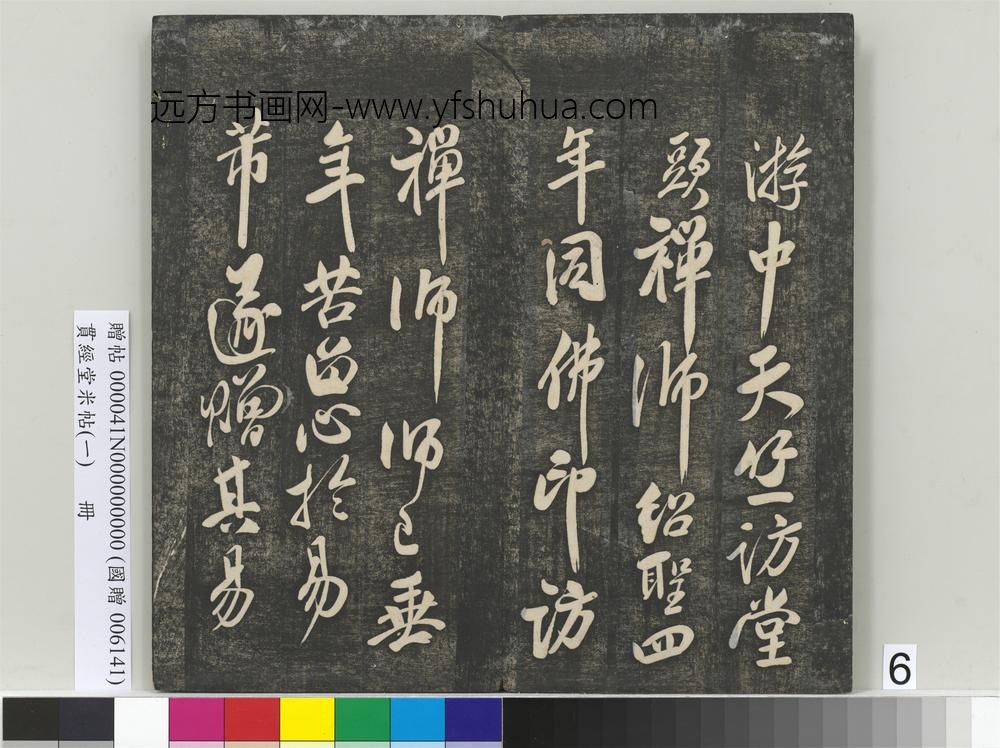 远方书画网-www.yfshuhua.com
游中天竺訪堂
頭禪師紹聖四
年同佛印訪
禪師師已垂
年苦留心於易
芾遂贈其易
贈帖 000041N000000000 (國贈 006141)
貫經堂米帖(一) 冊
6